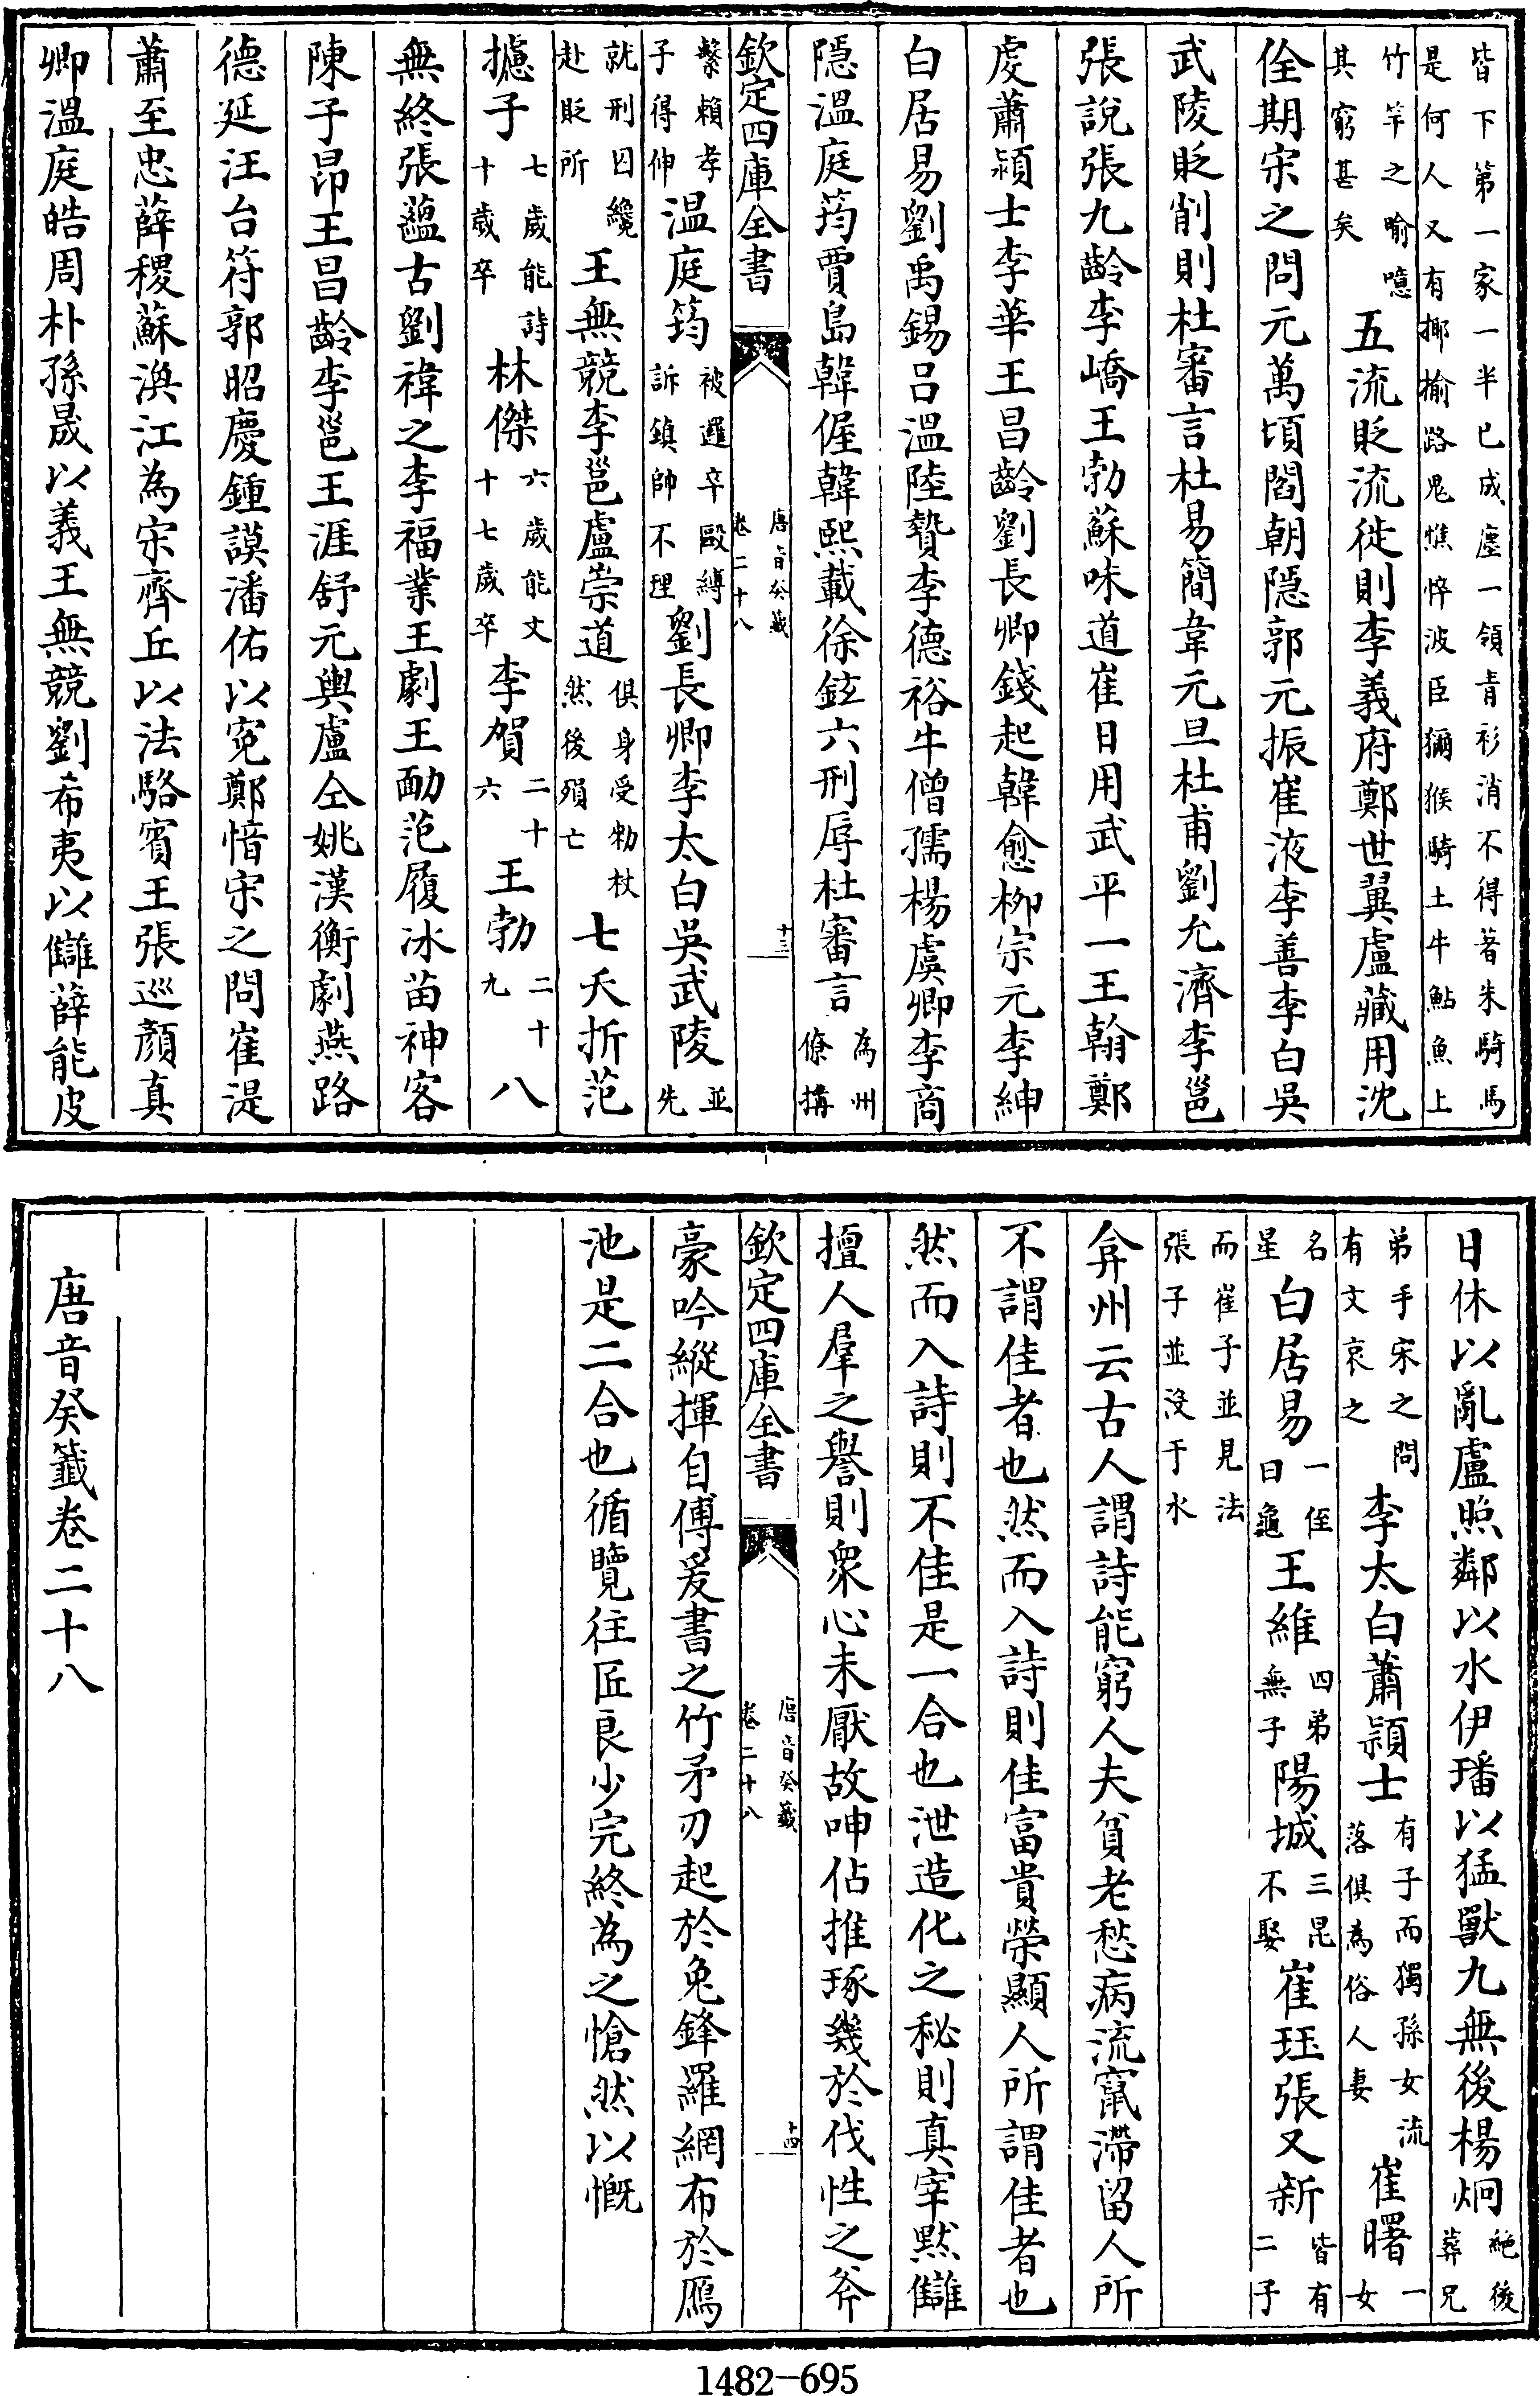 皆下第一家一半已成塵一領青衫消不得著朱騎馬
是何人又有揶揄路鬼憔悴波臣獼猴騎土牛鮎魚上
竹竿之喻噫
其窮甚矣
五流貶流徙則李義府鄭世翼盧藏用沈
佺期宋之問元萬頃閻朝隱郭元振崔液李善李白吳
武陵貶削則杜審言杜易簡韋元旦杜甫劉允濟李邕
張說張九齡李嶠王勃蘇味道崔日用武平一王翰鄭
虔蕭潁士李華王昌齡劉長卿錢起韓愈柳宗元李紳
白居易劉禹錫呂溫陸贄李德裕牛僧孺楊虞卿李商
隱溫庭筠賈島韓偓韓熙載徐鉉六刑辱杜審言
為州
僚搆
欽定四庫全書
唐音癸籤
卷二十八
十三
繫賴孝
子得伸
溫庭筠
被邏卒毆縛
訴鎮帥不理
劉長卿李太白吳武陵
並
先
就刑因纔
赴貶所
王無競李邕盧崇道
俱身受勑杖
然後殞亡
七夭折范
攄子
七歲能詩
十歲卒
林傑
六歲能文
十七歲卒
李賀
二十
六
王勃
二十
九
八
無終張蘊古劉禕之李福業王勮王勔范履冰苗神客
陳子昂王昌齡李邕王涯舒元輿盧仝姚漢衡劇燕路
德延汪台符郭昭慶鍾謨潘佑以寃鄭愔宋之問崔湜
蕭至忠薛稷蘇渙江為宋齊丘以法駱賓王張巡顏真
卿溫庭皓周朴孫晟以義王無競劉希夷以讎薛能皮
日休以亂盧照鄰以水伊璠以猛獸九無後楊炯
絶後
葬兄
弟手宋之問
有文哀之
李太白蕭潁士
有子而獨孫女流
落俱為俗人妻
崔曙
一
女
名
星
白居易
一侄
曰龜
王維
四弟
無子
陽城
三昆
不娶
崔珏張又新
皆有
二子
而崔子並見法
張子並沒于水
弇州云古人謂詩能窮人夫貧老愁病流竄滯留人所
不謂佳者也然而入詩則佳富貴榮顯人所謂佳者也
然而入詩則不佳是一合也泄造化之秘則真宰默讎
擅人羣之譽則衆心未厭故呻佔推琢幾於伐性之斧
欽定四庫全書
唐音癸籤
卷二十八
十四
豪吟縱揮自傅爰書之竹矛刃起於兔鋒羅網布於鴈
池是二合也循覽往匠良少完終為之愴然以慨
唐音癸籤卷二十八
1482-695